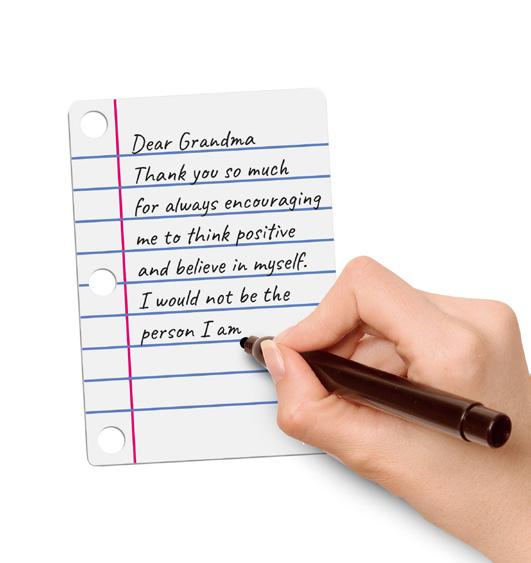 Dear Grandma
Thank you so much
for always encouraging
me to think positive
and believe in myself.
I would not be the
person I am